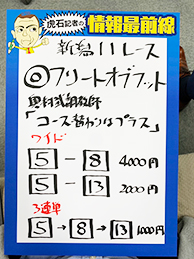 虎石記者の
情報最前線
新潟11レース
◎フリートオブフット
奥村武調教師
「コース替わりはプラス」
ワイド
5 - 8 4000円
5 - 13 2000円
3連単
5 → 8 → 13 1000円